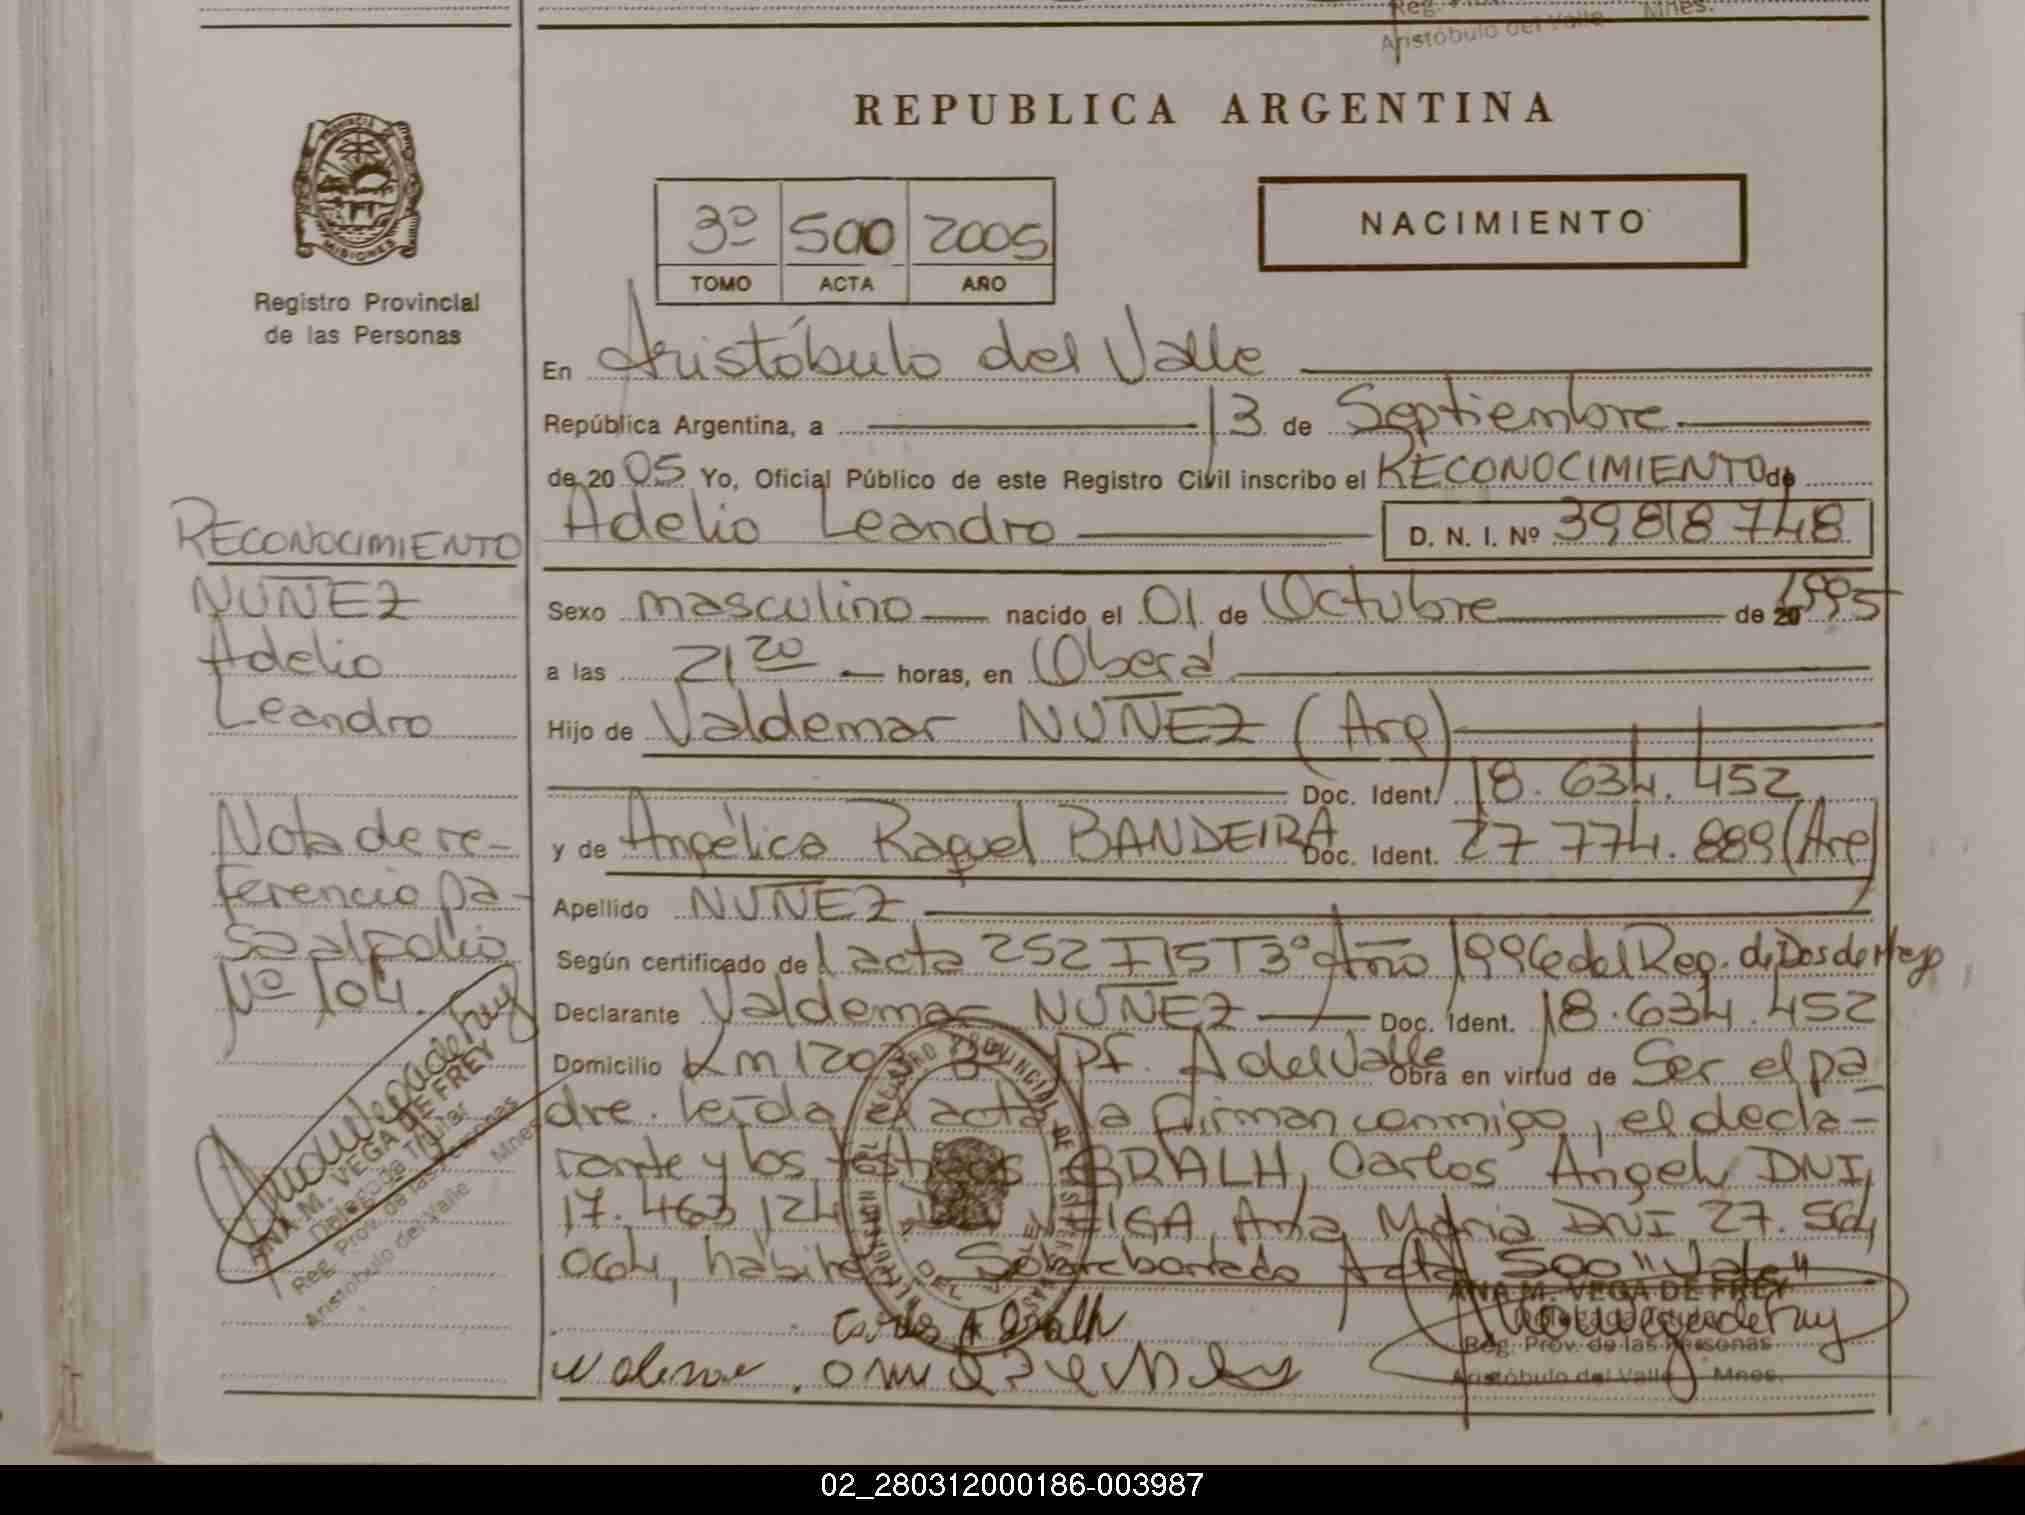 Reg.
Mnes.
Aristóbulo del Valle
PROVINCIA DE
MISIONES
Registro Provincial
de las Personas
REPUBLICA ARGENTINA
3º 500 2005
TOMO ACTA AÑO
NACIMIENTO
En Aristóbulo del Valle
República Argentina, a 13 de Septiembre
de 2005 Yo, Oficial Público de este Registro Civil inscribo el RECONOCIMIENTO de
Adelio Leandro D. N. I. Nº 39818748
Sexo masculino nacido el 01 de Octubre de 20 1995
a las 21 20 horas, en Oberá
Hijo de Valdemar NUÑEZ (Arg)
Doc. Ident. 18.634.452
y de Angélica Raquel BANDEIRA Doc. Ident. 27 774.889 (Arg)
Apellido NUÑEZ
Según certificado de acta 252 T3º Año 1996 del Reg. de Dos de Mayo
Declarante Valdemar NUÑEZ Doc. Ident. 18.634.452
Domicilio Km 120 A del Valle Obra en virtud de Ser el pa
dre. leída el acta la firman conmigo, el decla-
rante y los testigos GRALH, Carlos Angel, DNI,
17.463 124 Ana Maria DNI 27.564,
064, hábiles Sobreborrado Acta 500 "Vale"
ANA M. VEGA DE FREY
Delegada Titular
Reg. Prov. de las Personas
Aristóbulo del Valle Mnes.
RECONOCIMIENTO
NUÑEZ
Adelio
Leandro
Nota de re-
ferencia pa-
sa al folio
Nº 104.
ANA M. VEGA DE FREY
Delegada Titular
Reg. Prov. de las Personas
Aristóbulo del Valle Mnes
02_280312000186-003987